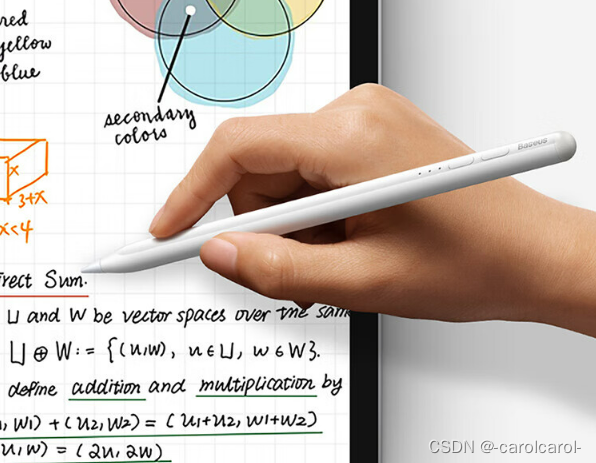 red
yellow
blue
secondary
colors
x
3+x
x<4
irect Sum.
U and W be vector spaces over the sam
U ⊕ W:= {(u,w), u ∈ U, w ∈ W}.
define addition and multiplication by
, w1) + (u2, w2) = (u1+u2, w1+w2)
u, w) = (2u, 2w)
Baseus
CSDN @-carolcarol-